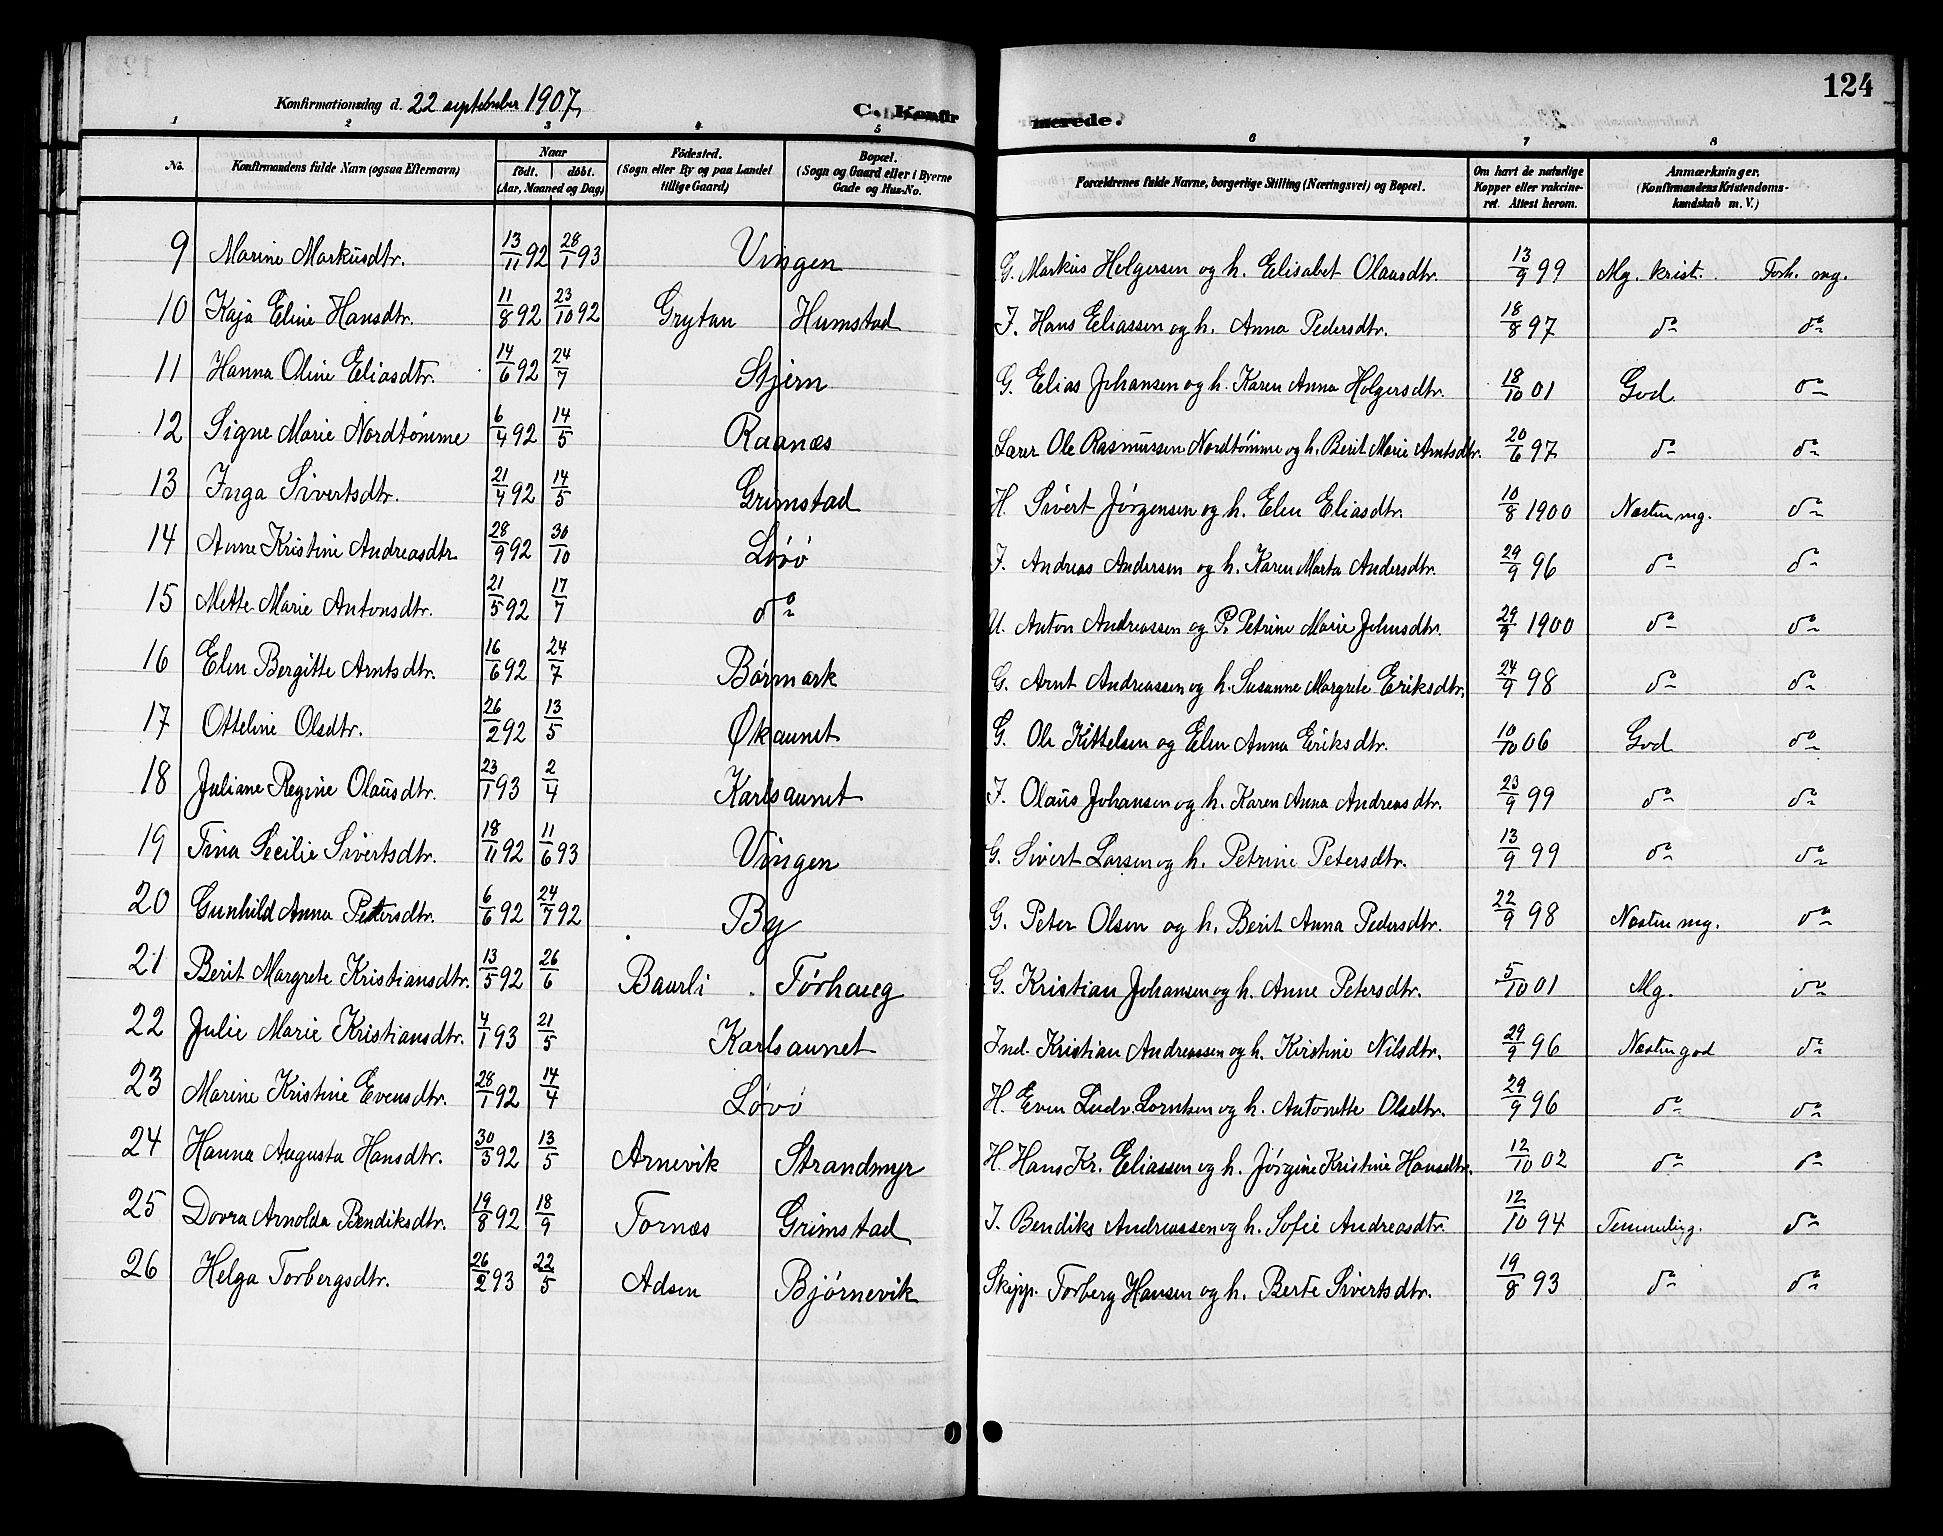 124
Konfirmationsdag d. 22 september 1907,
C. Konfir merede.
1 2 3 4 5 6 7 8
No. Konfirmandens fulde Navn (ogsaa Efternavn) Naar født. døbt. (Aar, Maaned og Dag) Fødested. (Sogn eller By og paa Landet tillige Gaard) Bopæl. (Sogn og Gaard eller i Byerne Gade og Hus-No. Forældrenes fulde Navne, borgerlige Stilling (Næringsvei) og Bopæl. Om havt de naturlige Kopper eller vakcineret. Attest herom. Anmærkninger. (Konfirmandens Kristendomskundskab m. V.)
9 Marine Markusdtr. 13/11 92 28/1 93 Vingen G. Markus Holgersen og h. Elisabet Olausdtr. 13/9 99 Mg. krist. Forh. mg.
10 Kaja Eline Hansdtr. 11/8 92 23/10 92 Grytan Humstad I. Hans Eliassen og h. Anna Pedersdtr. 18/8 97 do do
11 Hanna Oline Eliasdtr. 14/6 92 24/7 Stjern G. Elias Johansen og h. Karen Anna Holgersdtr. 18/10 01 God do
12 Signe Marie Nordtømme 6/4 92 14/5 Raanæs Lærer Ole Rasmussen Nordtømme og h. Berit Marie Arntsdtr. 20/6 97 do do
13 Inga Sivertsdtr. 21/4 92 14/5 Grimstad H. Sivert Jørgensen og h. Elen Eliasdtr. 10/8 1900 Næsten mg. do
14 Anne Kristine Andreasdtr. 28/9 92 30/10 Løvø I. Andreas Andersen og h. Karen Marta Andersdtr. 29/9 96 do do
15 Mette Marie Antonsdtr. 21/5 92 17/7 do U. Anton Andreassen og P. Petrine Marie Johnsdtr. 29/9 1900 do do
16 Elen Bergitte Arntsdtr. 16/6 92 24/7 Børmark G. Arnt Andreassen og h. Susanne Margrete Eriksdtr. 24/9 98 do do
17 Otteline Olsdtr. 26/2 92 13/5 Økaunet G. Ole Kittelsen og Elen Anna Eriksdtr. 10/10 06 God do
18 Juliane Regine Olausdtr. 23/1 93 2/4 Karlsaunet I. Olaus Johansen og h. Karen Anna Andreasdtr. 23/9 99 do do
19 Tina Secilie Sivertsdtr. 18/11 92 11/6 93 Vingen G. Sivert Larsen og h. Petrine Petersdtr. 13/9 99 do do
20 Gunhild Anna Petersdtr. 6/6 92 24/7 92 By G. Peter Olsen og h. Berit Anna Pedersdtr. 22/9 98 Næsten mg. do
21 Berit Margrete Kristiansdtr. 13/5 92 26/6 Baurli Førhaug G. Kristian Johansen og h. Anne Petersdtr. 5/10 01 Mg. do
22 Julie Marie Kristiansdtr. 4/1 93 21/5 Karlsaunet Ind. Kristian Andreassen og h. Kirstine Nilsdtr. 29/9 96 Næsten god do
23 Marine Kristine Evensdtr. 28/1 92 14/4 Løvø H. Even Ludv. Lorntsen og h. Antonette Olsdtr. 29/9 96 do do
24 Hanna Augusta Hansdtr. 30/3 92 13/5 Arnevik Strandmyr H. Hans Kr. Eliassen og h. Jørgine Kristine Hansdtr. 12/10 02 do do
25 Dovra Arnolda Bendiksdtr. 19/8 92 18/9 Tornæs Grimstad I. Bendiks Andreassen og h. Sofie Andreasdtr. 12/10 94 Temmelig g. do
26 Helga Torbergsdtr. 26/2 93 22/5 Adsen Bjørnevik Skipp. Torberg Hansen og h. Berte Sivertsdtr. 19/8 93 do do